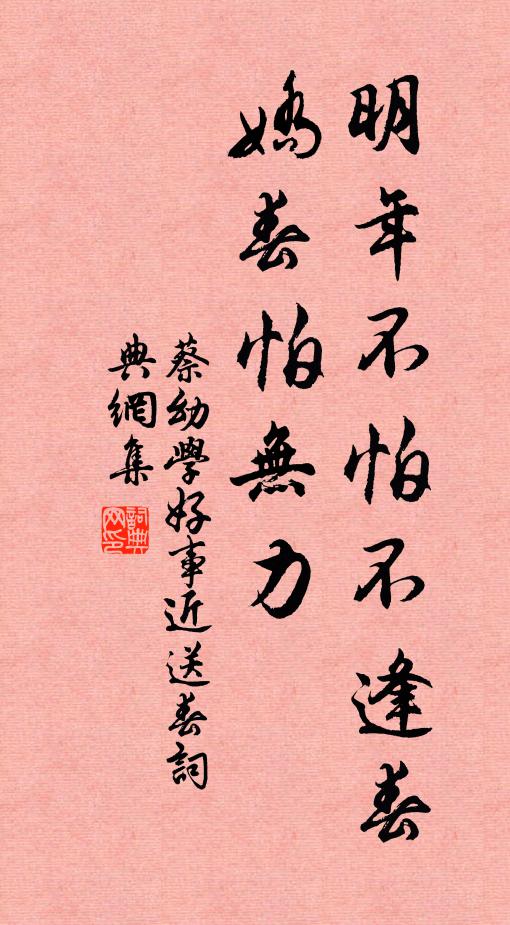 明年不怕不逢春
嬌春怕無力
蔡幼學好事近送春詞
典網集
詞典网印